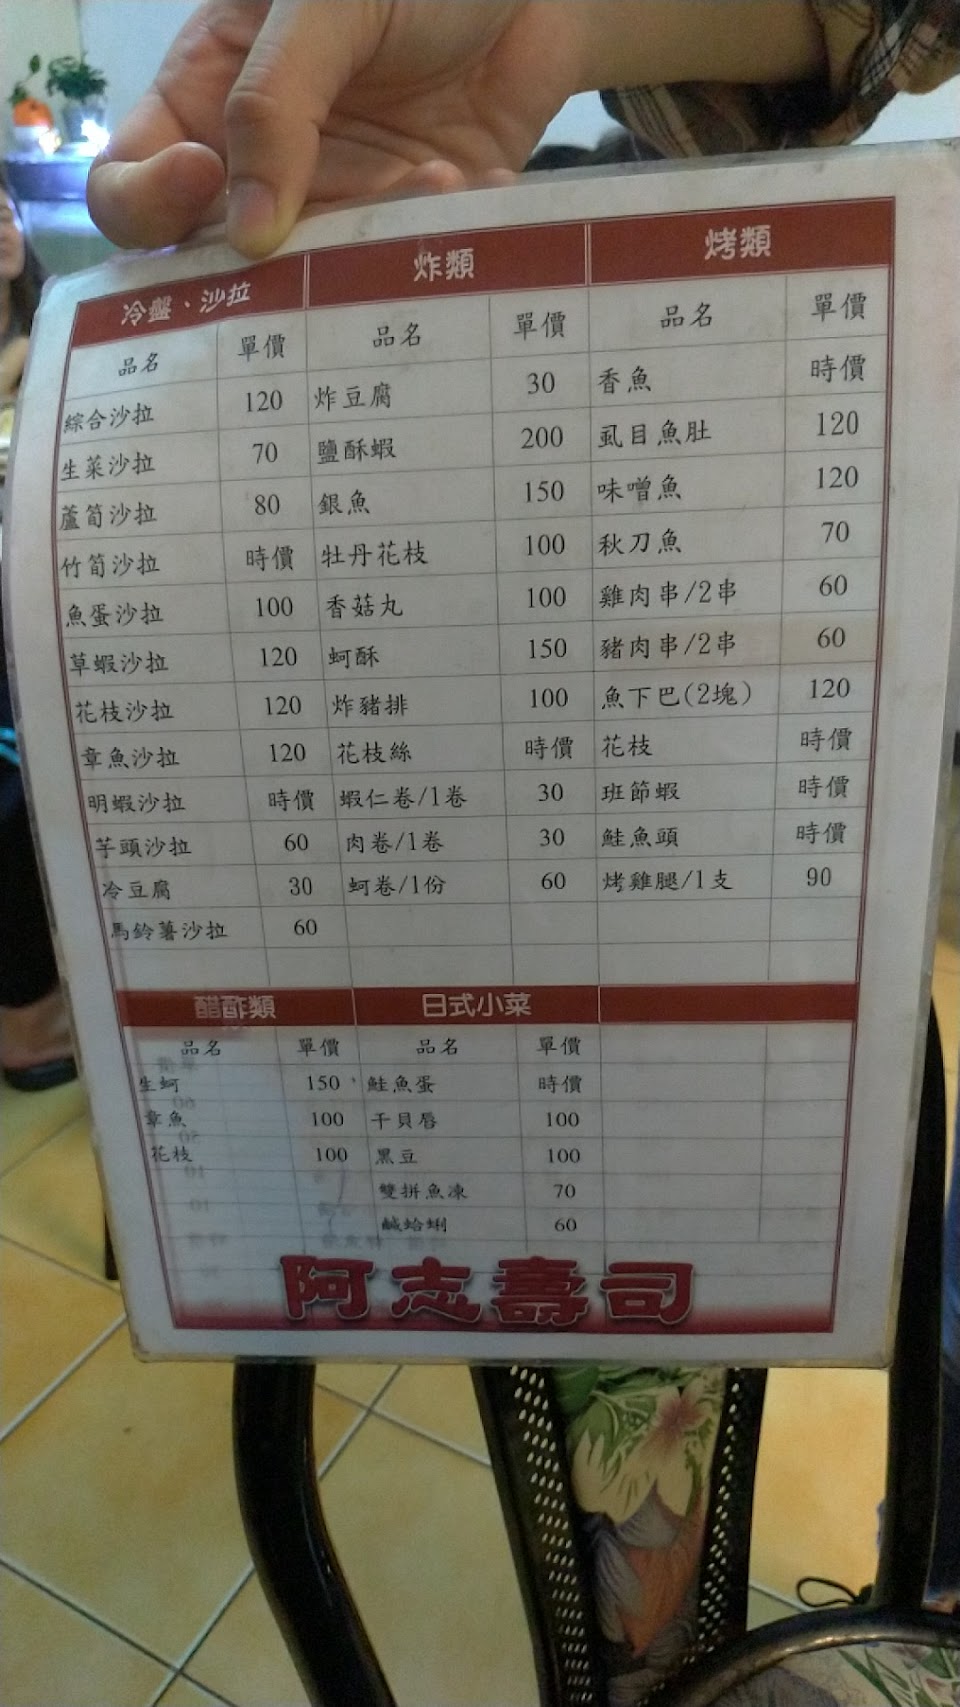 冷盤、沙拉 炸類 烤類
品名 單價 品名 單價 品名 單價
綜合沙拉 120 炸豆腐 30 香魚 時價
生菜沙拉 70 鹽酥蝦 200 虱目魚肚 120
蘆筍沙拉 80 銀魚 150 味噌魚 120
竹筍沙拉 時價 牡丹花枝 100 秋刀魚 70
魚蛋沙拉 100 香菇丸 100 雞肉串/2串 60
草蝦沙拉 120 蚵酥 150 豬肉串/2串 60
花枝沙拉 120 炸豬排 100 魚下巴(2塊) 120
章魚沙拉 120 花枝絲 時價 花枝 時價
明蝦沙拉 時價 蝦仁卷/1卷 30 班節蝦 時價
芋頭沙拉 60 肉卷/1卷 30 鮭魚頭 時價
冷豆腐 30 蚵卷/1份 60 烤雞腿/1支 90
馬鈴薯沙拉 60
醋酢類 日式小菜
品名 單價 品名 單價
生蚵 150 鮭魚蛋 時價
章魚 100 干貝唇 100
花枝 100 黑豆 100
雙拼魚凍 70
鹹蛤蜊 60
阿志壽司